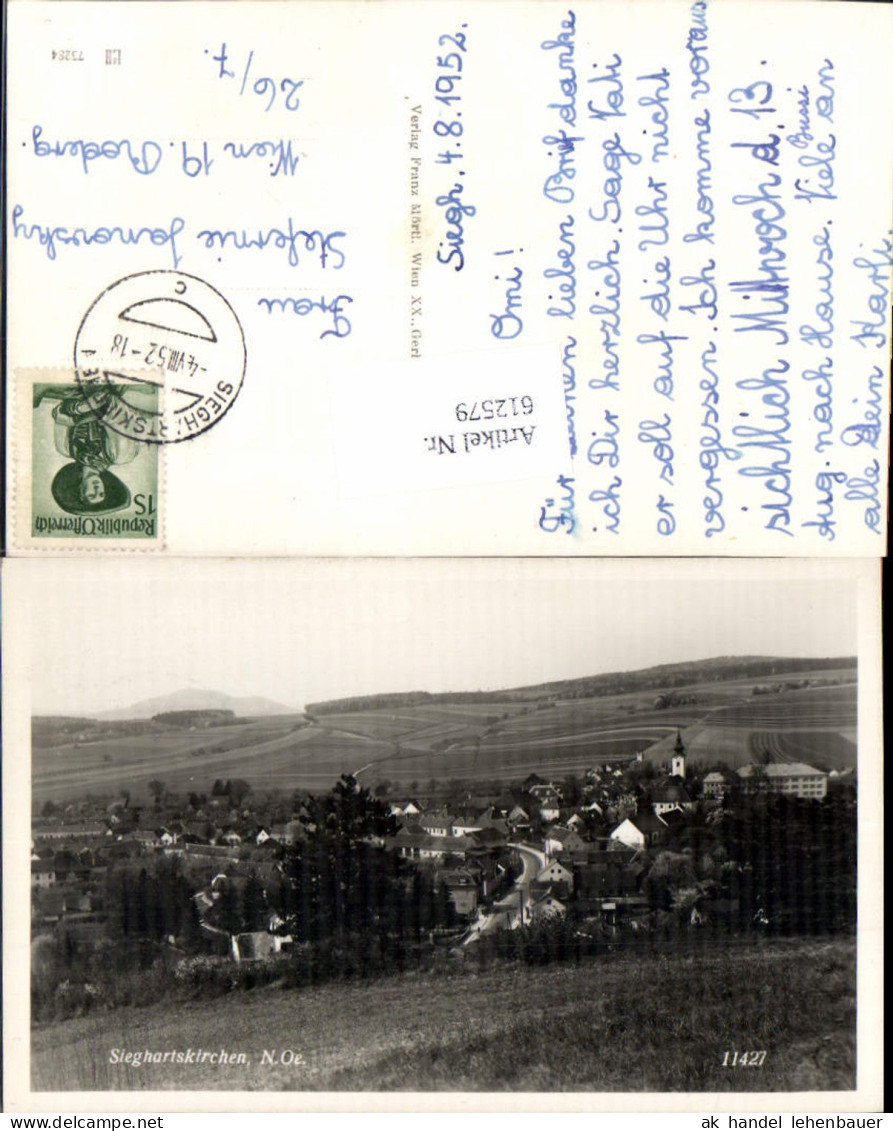 Siegh. 4.8.1952.
Omi!
Für Deinen lieben Brief danke
ich Dir herzlich. Sage Vati
er soll auf die Uhr nicht
vergessen. Ich komme voraus
sichtlich Mittwoch d. 13.
Aug. nach Hause. Viele Bussi an
alle Dein Karli.
Verlag Franz Mörtl. Wien XX., Gerl
Artikel Nr.
612579
Frau
Stefernie Janovsky
Wien 19.
26/7.
73284
SIEGHARTSKIRCHEN
-4.VIII.52-18
C
1S
Republik Österreich
Sieghartskirchen, N.Oe.
11427
ak handel lehenbauer